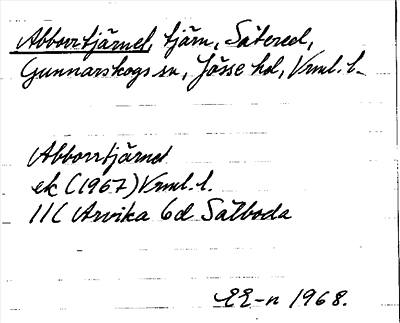 Abborrtjärnet, tjärn, Sätered,
Gunnarskogs sn, Jösse hd, Vrml. l.
Abborrtjärnet
ek (1967) Vrml. l.
11C Arvika 6d Sälboda
EE-n 1968.